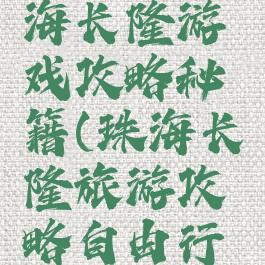 海长隆游
戏攻略秘
籍(珠海长
隆旅游攻
略自由行